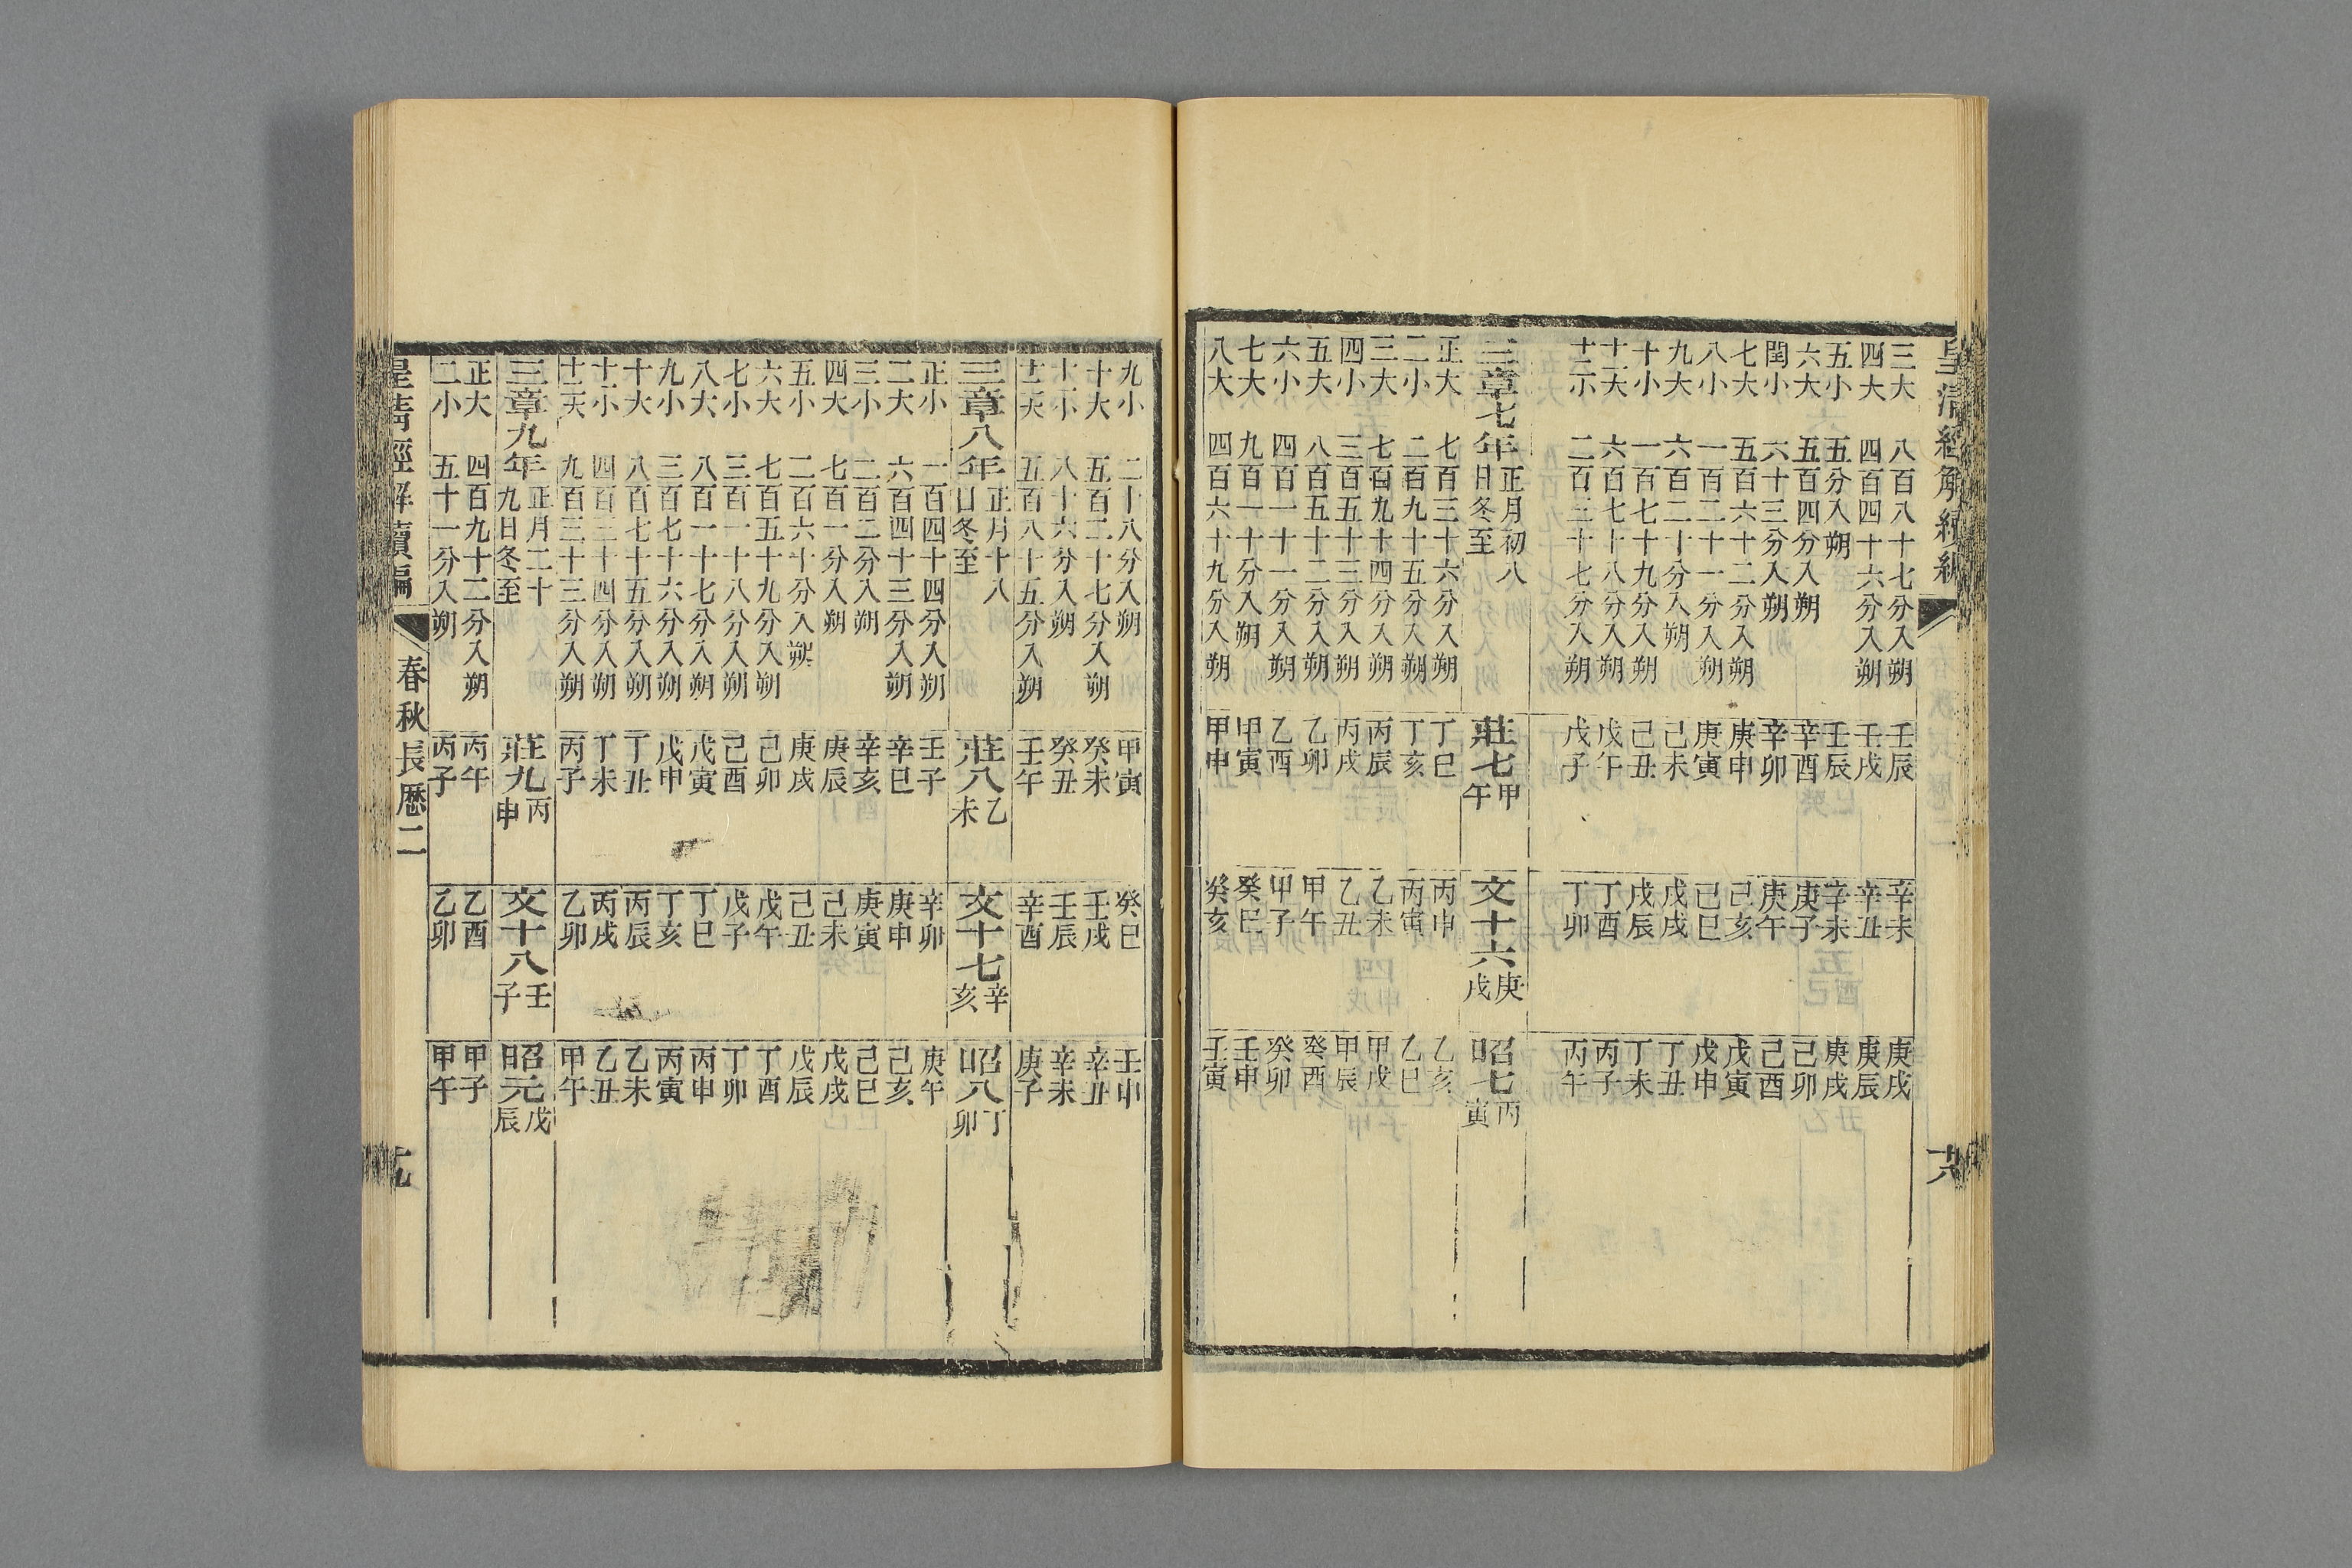 皇清經解續編 十八
三大 八百八十七分入朔 壬辰 辛未 庚戌
四大 四百四十六分入朔 壬戌 辛丑 庚辰
五小 五分入朔 壬辰 辛未 庚戌
六大 五百四分入朔 辛酉 庚子 己卯
閏小 六十三分入朔 辛卯 庚午 己酉
七大 五百六十二分入朔 庚申 己亥 戊寅
八小 一百二十一分入朔 庚寅 己巳 戊申
九大 六百二十分入朔 己未 戊戌 丁丑
十小 一百七十九分入朔 己丑 戊辰 丁未
十一大 六百七十八分入朔 戊午 丁酉 丙子
十二小 二百三十七分入朔 戊子 丁卯 丙午
三章七年 正月初八日冬至 莊七 甲午 文十六 庚戌 昭七 丙寅
正大 七百三十六分入朔 丁巳 丙申 乙亥
二小 二百九十五分入朔 丁亥 丙寅 乙巳
三大 七百九十四分入朔 丙辰 乙未 甲戌
四小 三百五十三分入朔 丙戌 乙丑 甲辰
五大 八百五十二分入朔 乙卯 甲午 癸酉
六小 四百一十一分入朔 乙酉 甲子 癸卯
七大 九百一十分入朔 甲寅 癸巳 壬申
八大 四百六十九分入朔 甲申 癸亥 壬寅
九小 二十八分入朔 甲寅 癸巳 壬申
十大 五百二十七分入朔 癸未 壬戌 辛丑
十一小 八十六分入朔 癸丑 壬辰 辛未
十二大 五百八十五分入朔 壬午 辛酉 庚子
三章八年 正月十八日冬至 莊八 乙未 文十七 辛亥 昭八 丁卯
正小 一百四十四分入朔 壬子 辛卯 庚午
二大 六百四十三分入朔 辛巳 庚申 己亥
三小 二百二分入朔 辛亥 庚寅 己巳
四大 七百一分入朔 庚辰 己未 戊戌
五小 二百六十分入朔 庚戌 己丑 戊辰
六大 七百五十九分入朔 己卯 戊午 丁酉
七小 三百一十八分入朔 己酉 戊子 丁卯
八大 八百一十七分入朔 戊寅 丁巳 丙申
九小 三百七十六分入朔 戊申 丁亥 丙寅
十大 八百七十五分入朔 丁丑 丙辰 乙未
十一小 四百三十四分入朔 丁未 丙戌 乙丑
十二大 九百三十三分入朔 丙子 乙卯 甲午
三章九年 正月二十九日冬至 莊九 丙申 文十八 壬子 昭元 戊辰
正大 四百九十二分入朔 丙午 乙酉 甲子
二小 五十一分入朔 丙子 乙卯 甲午
皇清經解續編 春秋長歷二 十九